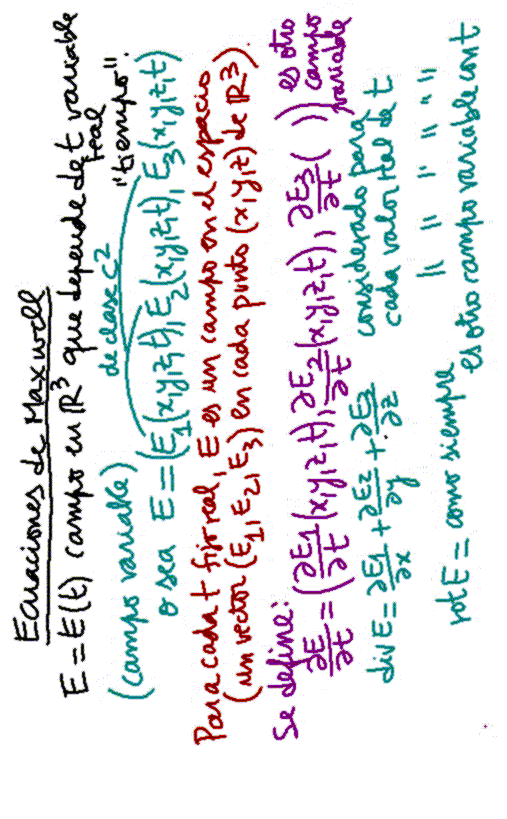 Ecuaciones de Maxwell
E = E(t) campo en ℝ³ que depende de t variable
real
"tiempo".
(campo variable) de clase C2
o sea E = (E₁(x,y,z,t), E₂(x,y,z,t), E₃(x,y,z,t)
Para cada t fijo real, E es un campo en el espacio
(un vector (E₁, E₂, E₃) en cada punto (x,y,z) de ℝ³).
Se define:
∂E/∂t = (∂E1/∂t (x,y,z,t), ∂E2/∂t (x,y,z,t), ∂E3/∂t ( )) es otro
campo
variable
div E = ∂E1/∂x + ∂E2/∂y + ∂E3/∂z considerado para
cada valor real de t
rot E = como siempre " " " " " "
es otro campo variable cont